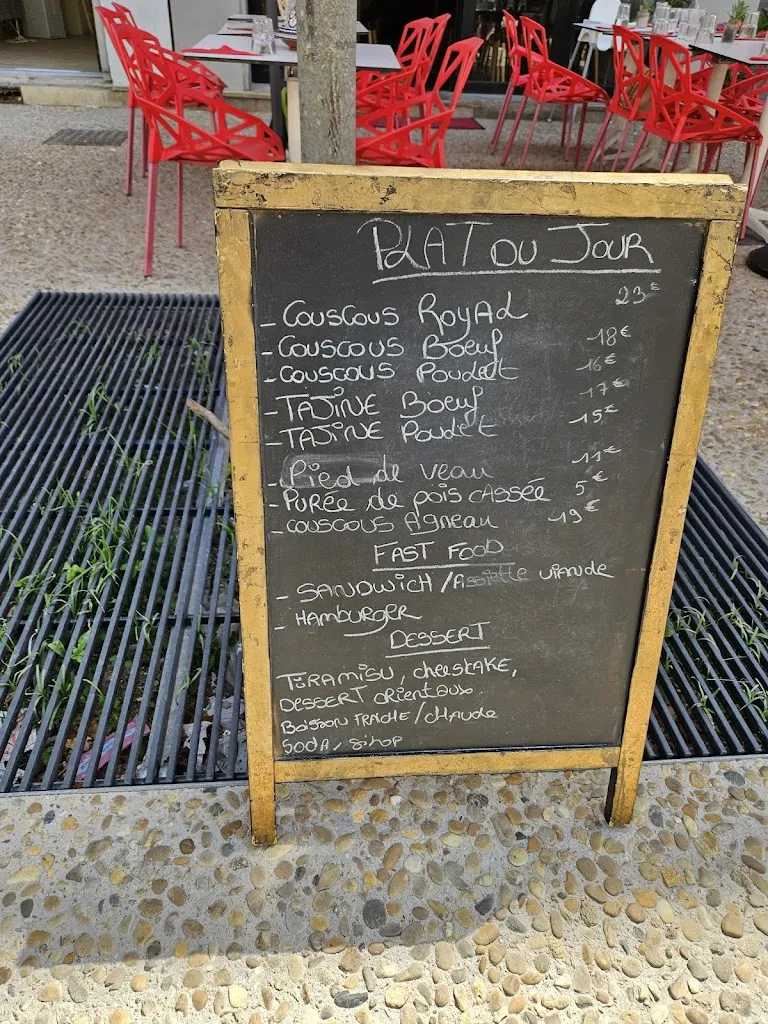 PLAT DU JOUR
- COUSCOUS ROYAL 23€
- COUSCOUS Boeuf 18€
- COUSCOUS Poulet 16€
- TAJINE Boeuf 17€
- TAJINE Poulet 15€
- Pied de veau 11€
- PURÉE de pois CASSÉE 5€
- COUSCOUS Agneau 19€
FAST FOOD
- SANDWICH / Assiette viande
- HAMBURGER
DESSERT
TIRAMISU, cheesKAKE,
DESSERT orientaux.
BOISSON FRAICHE / CHAUDE
SODA, sirop